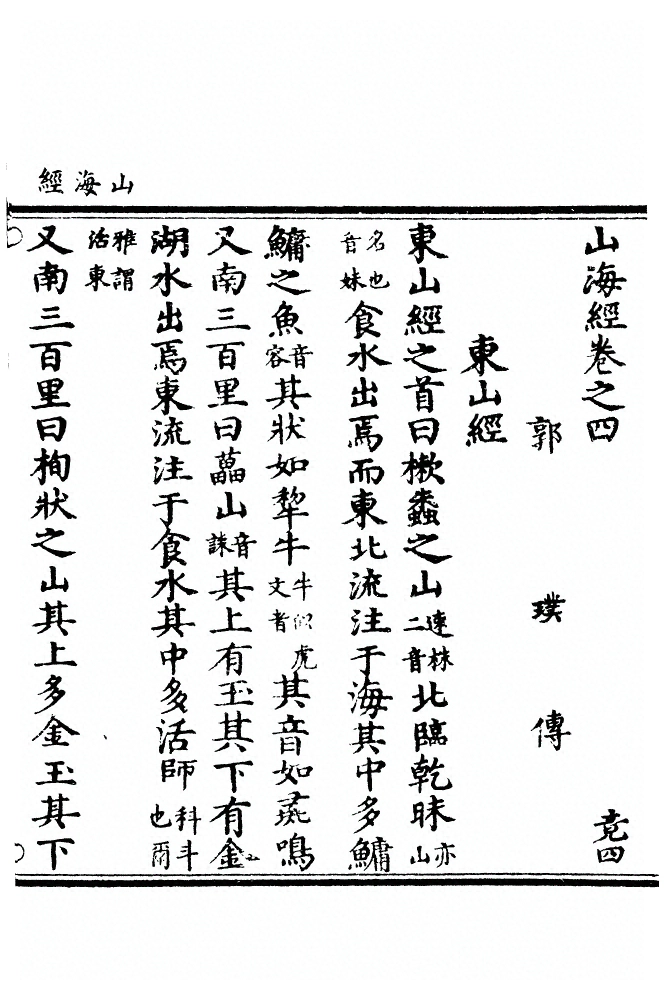 山海經
山海經卷之四 竟四
郭 璞 傳
東山經
東山經之首曰樕之山速株二音北臨乾昧亦山
名也音妹食水出焉而東北流注于海其中多鱅
鱅之魚音容其狀如犂牛牛似虎文者其音如彘鳴
又南三百里曰藟山音誄其上有玉其下有金
湖水出焉東流注于食水其中多活師科斗也爾
雅謂活東
又南三百里曰栒狀之山其上多金玉其下